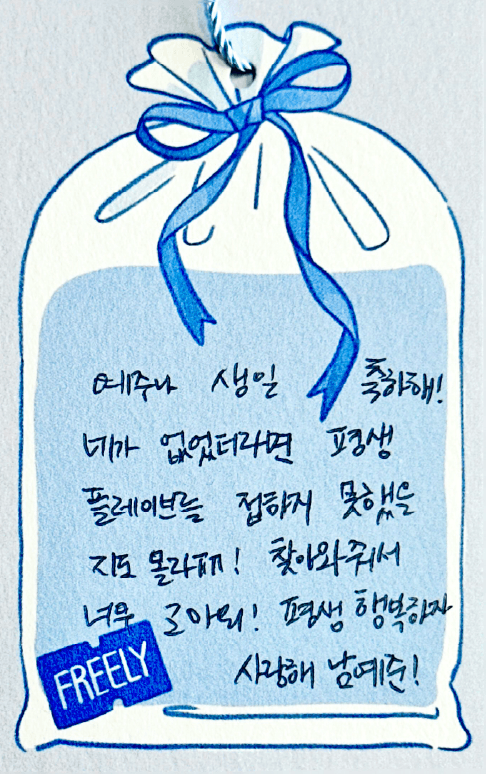 예주나 생일 축하해!
네가 없었더라면 평생
플레이브를 접하지 못했을
지도 몰라ㅠㅠ! 찾아와줘서
너무 고마워! 평생 행복하자
사랑해 남예준!
FREELY